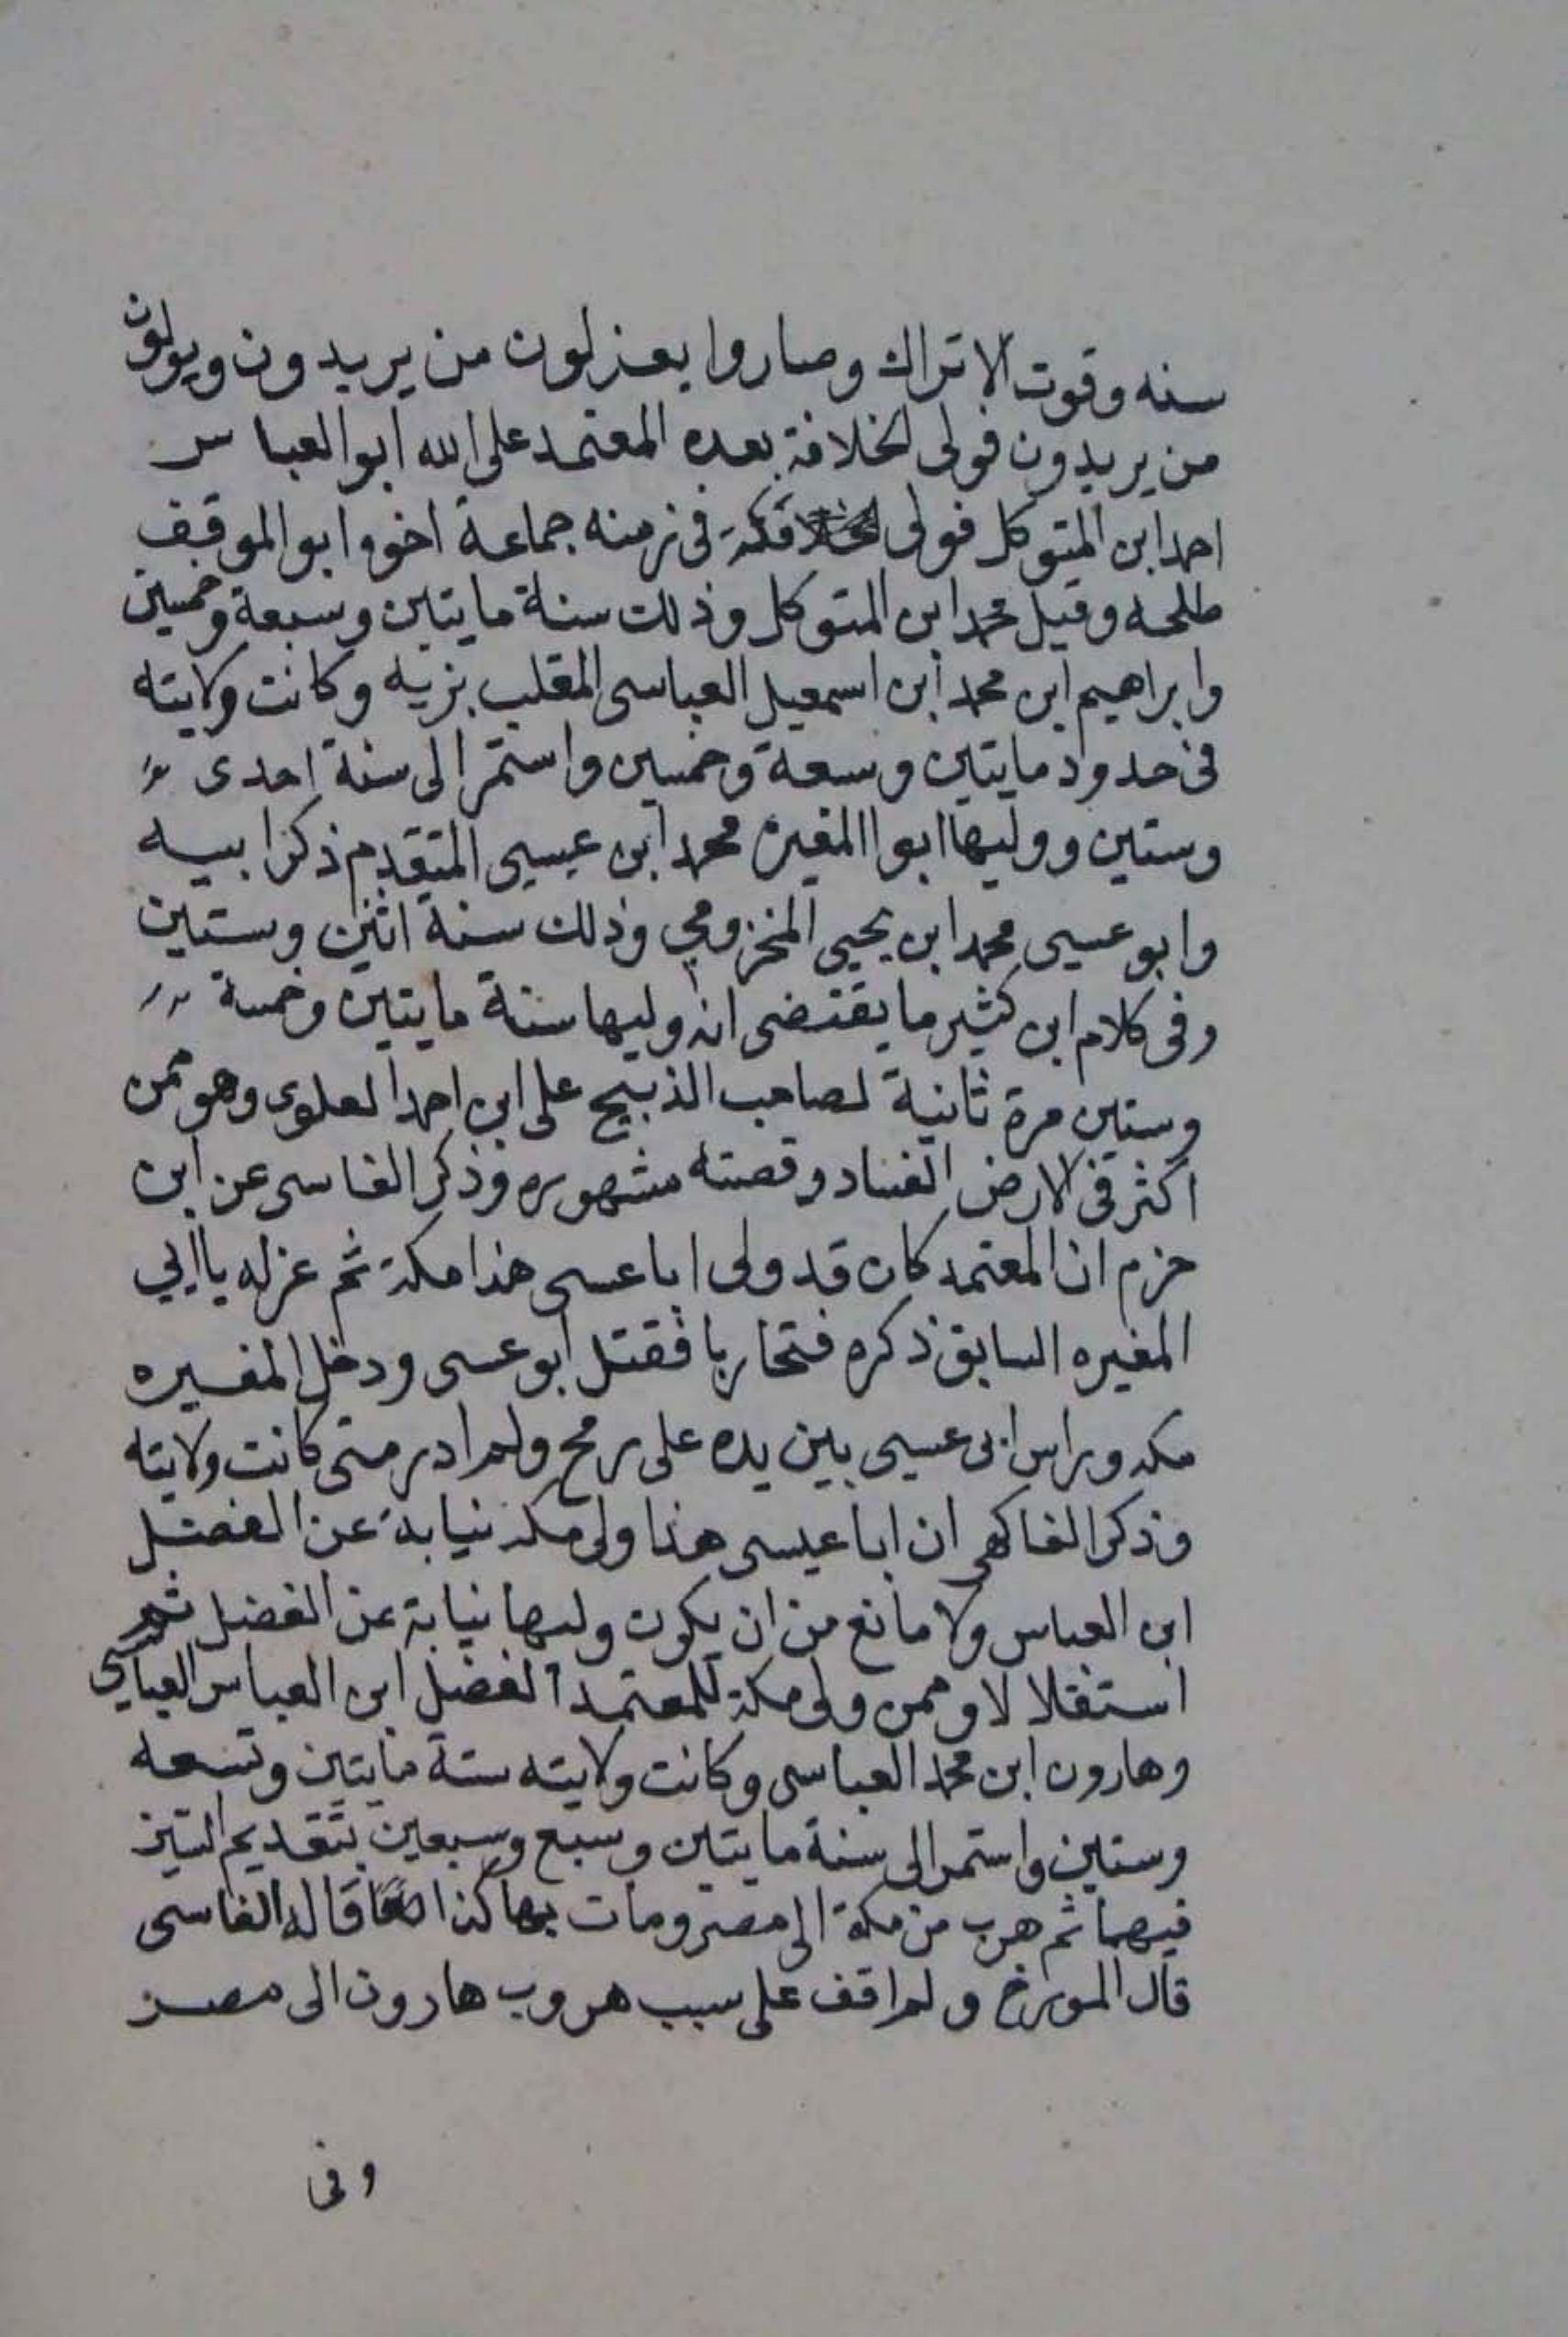 سنه وقوت الاتراك وصاروا يعزلون من يريدون ويولون
من يريدون فولى الخلافة بعده المعتمد على الله ابو العباس
احمد ابن المتوكل فولى مكة فى زمنه جماعة اخوه ابو الموفق
طلحه وقيل محمد ابن المتوكل وذلك سنة مايتين وسبعة وخمسين
وابراهيم ابن محمد ابن اسمعيل العباسى المقلب بزيه وكانت ولايته
فى حدود مايتين وسعة وخمسين واستمر الى سنة احدى
وستين ووليها ابوا المغيره محمد ابن عيسى المتقدم ذكر ابيه
وابو عيسى محمد ابن يحيى المخزومي وذلك سنة اثنين وستين
وفى كلام ابن كثير ما يقتضى انه وليها سنة مايتين وخمسة
وستين مرة ثانية لصاحب الذبيح على ابن احمد العلوى وهو ممن
اكثر فى الارض الفساد وقصته مشهوره وذكر الفاسى عن ابن
حزم ان المعتمد كان قد ولى ابا عيسى هذا مكة ثم عزله باابي
المغيره السابق ذكره فتحاربا فقتل ابو عيسى ودخل المغيره
مكه وراس ابى عيسى بين يده على رمح ولم ادر متى كانت ولايته
وذكر الفاكهى ان ابا عيسى هذا ولى مكة نيابة عن الفضل
ابن العباس ولا مانع من ان يكون وليها نيابة عن الفضل ثم
استقلالا وممن ولى مكة للمعتمد الفضل ابن العباس العباسي
وهارون ابن محمد العباسى وكانت ولايته سنة مايتين وتسعه
وستين واستمر الى سنة مايتين وسبع وسبعين بتقديم السين
فيهما ثم هرب من مكة الى مصر ومات بها كذا قاله الفاسى
قال المورخ ولم اقف على سبب هروب هارون الى مصر
وفى